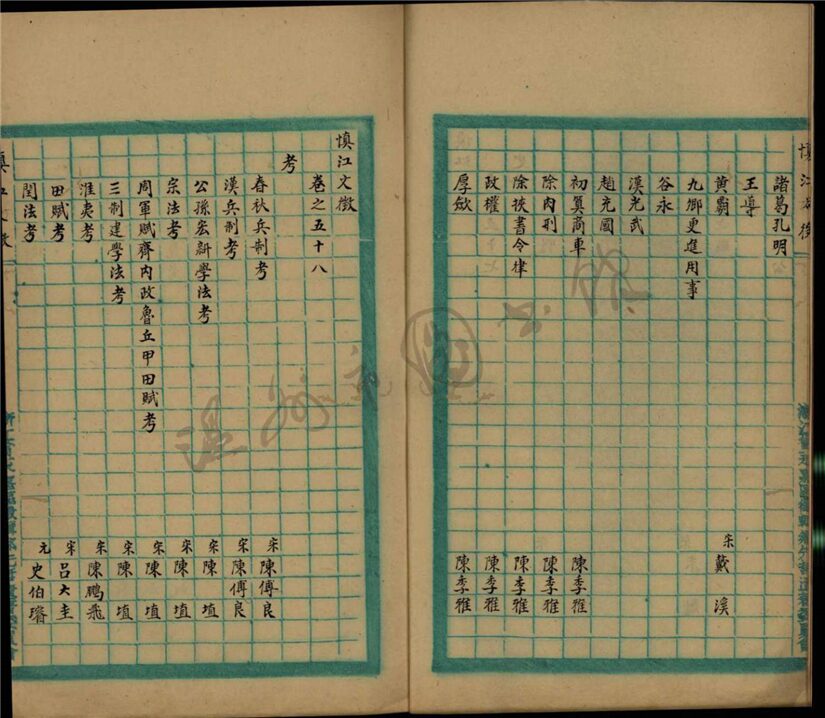 慎江文徵
諸葛孔明
王導
黄霸 宋 戴溪
九卿更進用事
谷永
漢光武
趙充國
初算商車 陳季雅
除肉刑 陳季雅
除挾書令律 陳季雅
政權 陳季雅
厚斂 陳季雅
慎江文徵
卷之五十八
考
春秋兵制考 宋 陳傅良
漢兵制考 宋 陳傅良
公孫宏新學法考 宋 陳埴
宗法考 宋 陳埴
周軍賦齊內政魯丘甲田賦考 宋 陳埴
三制建學法考 宋 陳埴
淮夷考 宋 陳鵬飛
田賦考 宋 呂大圭
閏法考 元 史伯璿
慎江文徵